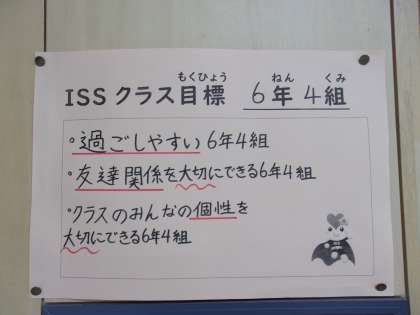 もくひょう ねん くみ
ISS クラス目標 6年4組
・過ごしやすい6年4組
・友達関係を大切にできる6年4組
・クラスのみんなの個性を
大切にできる6年4組